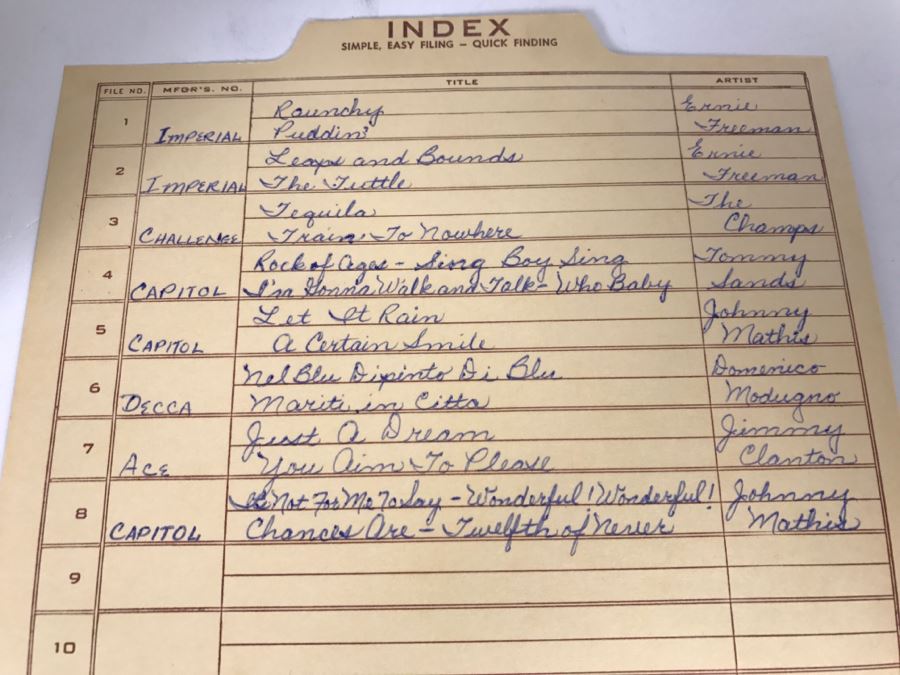 INDEX
SIMPLE, EASY FILING — QUICK FINDING
FILE NO. MFGR'S. NO. TITLE ARTIST
1 Raunchy Ernie
IMPERIAL Puddin' Freeman
2 Leaps and Bounds Ernie
IMPERIAL The Tuttle Freeman
3 Tequila The
CHALLENGE Train To Nowhere Champs
4 Rock of Ages - Sing Boy Sing Tommy
CAPITOL I'm Gonna Walk and Talk - Who Baby Sands
5 Let It Rain Johnny
CAPITOL A Certain Smile Mathis
6 Nel Blu Dipinto Di Blu Domenico
DECCA Mariti in Citta Modugno
7 Just A Dream Jimmy
ACE You Aim To Please Clanton
8 It's Not For Me To Say - Wonderful! Wonderful! Johnny
CAPITOL Chances Are - Twelfth of Never Mathis
9
10